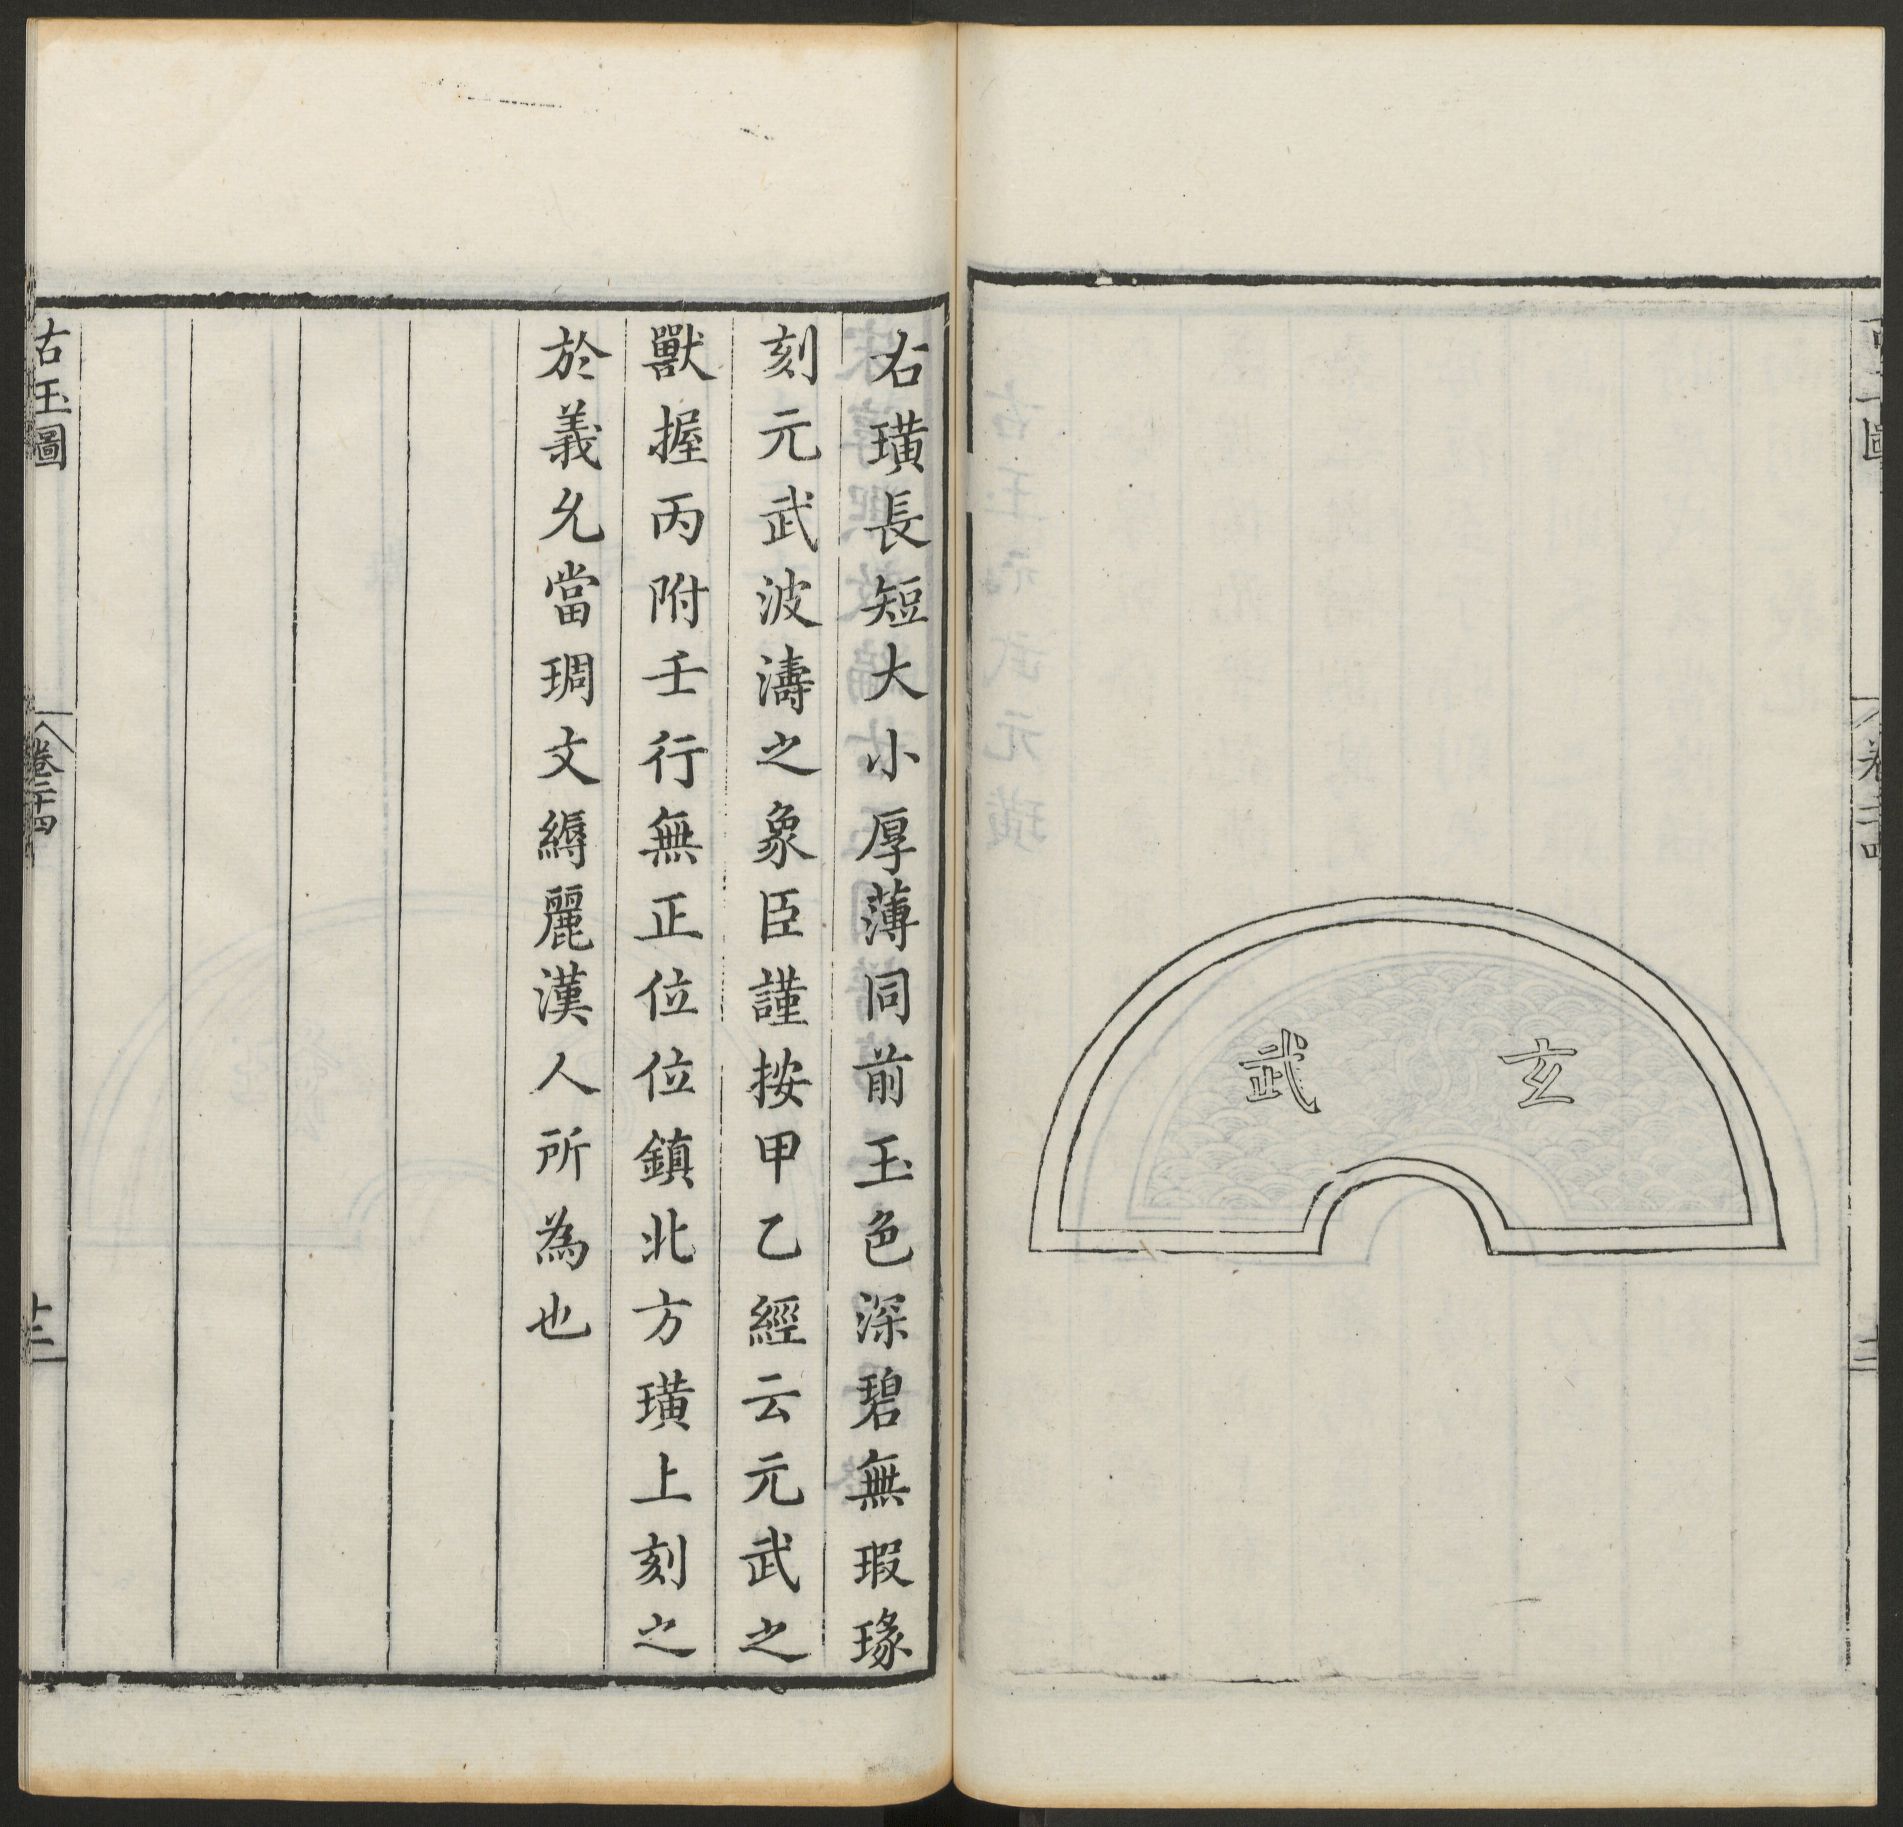 古玉圖
卷二十四
十二
玄武
右璜長短大小厚薄同前玉色深碧無瑕瑑
刻元武波濤之象臣謹按甲乙經云元武之
獸握丙附壬行無正位位鎮北方璜上刻之
於義允當琱文縟麗漢人所為也
古玉圖
卷二十四
十三